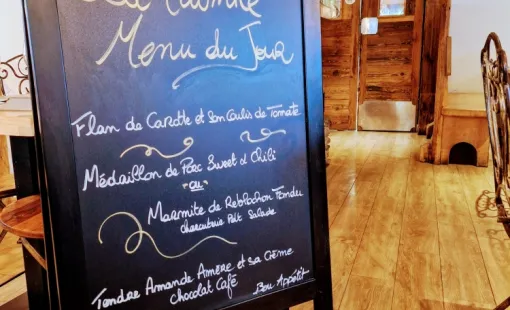 La Marmite
Menu du Jour
Flan de Carotte et Son Coulis de Tomate
Médaillon de Porc Sweet & Chili
ou
Marmite de Reblochon Fondu
charcuterie Petit Salade
Tendre Amande Amère et sa Crème
Chocolat Café
Bon Appétit